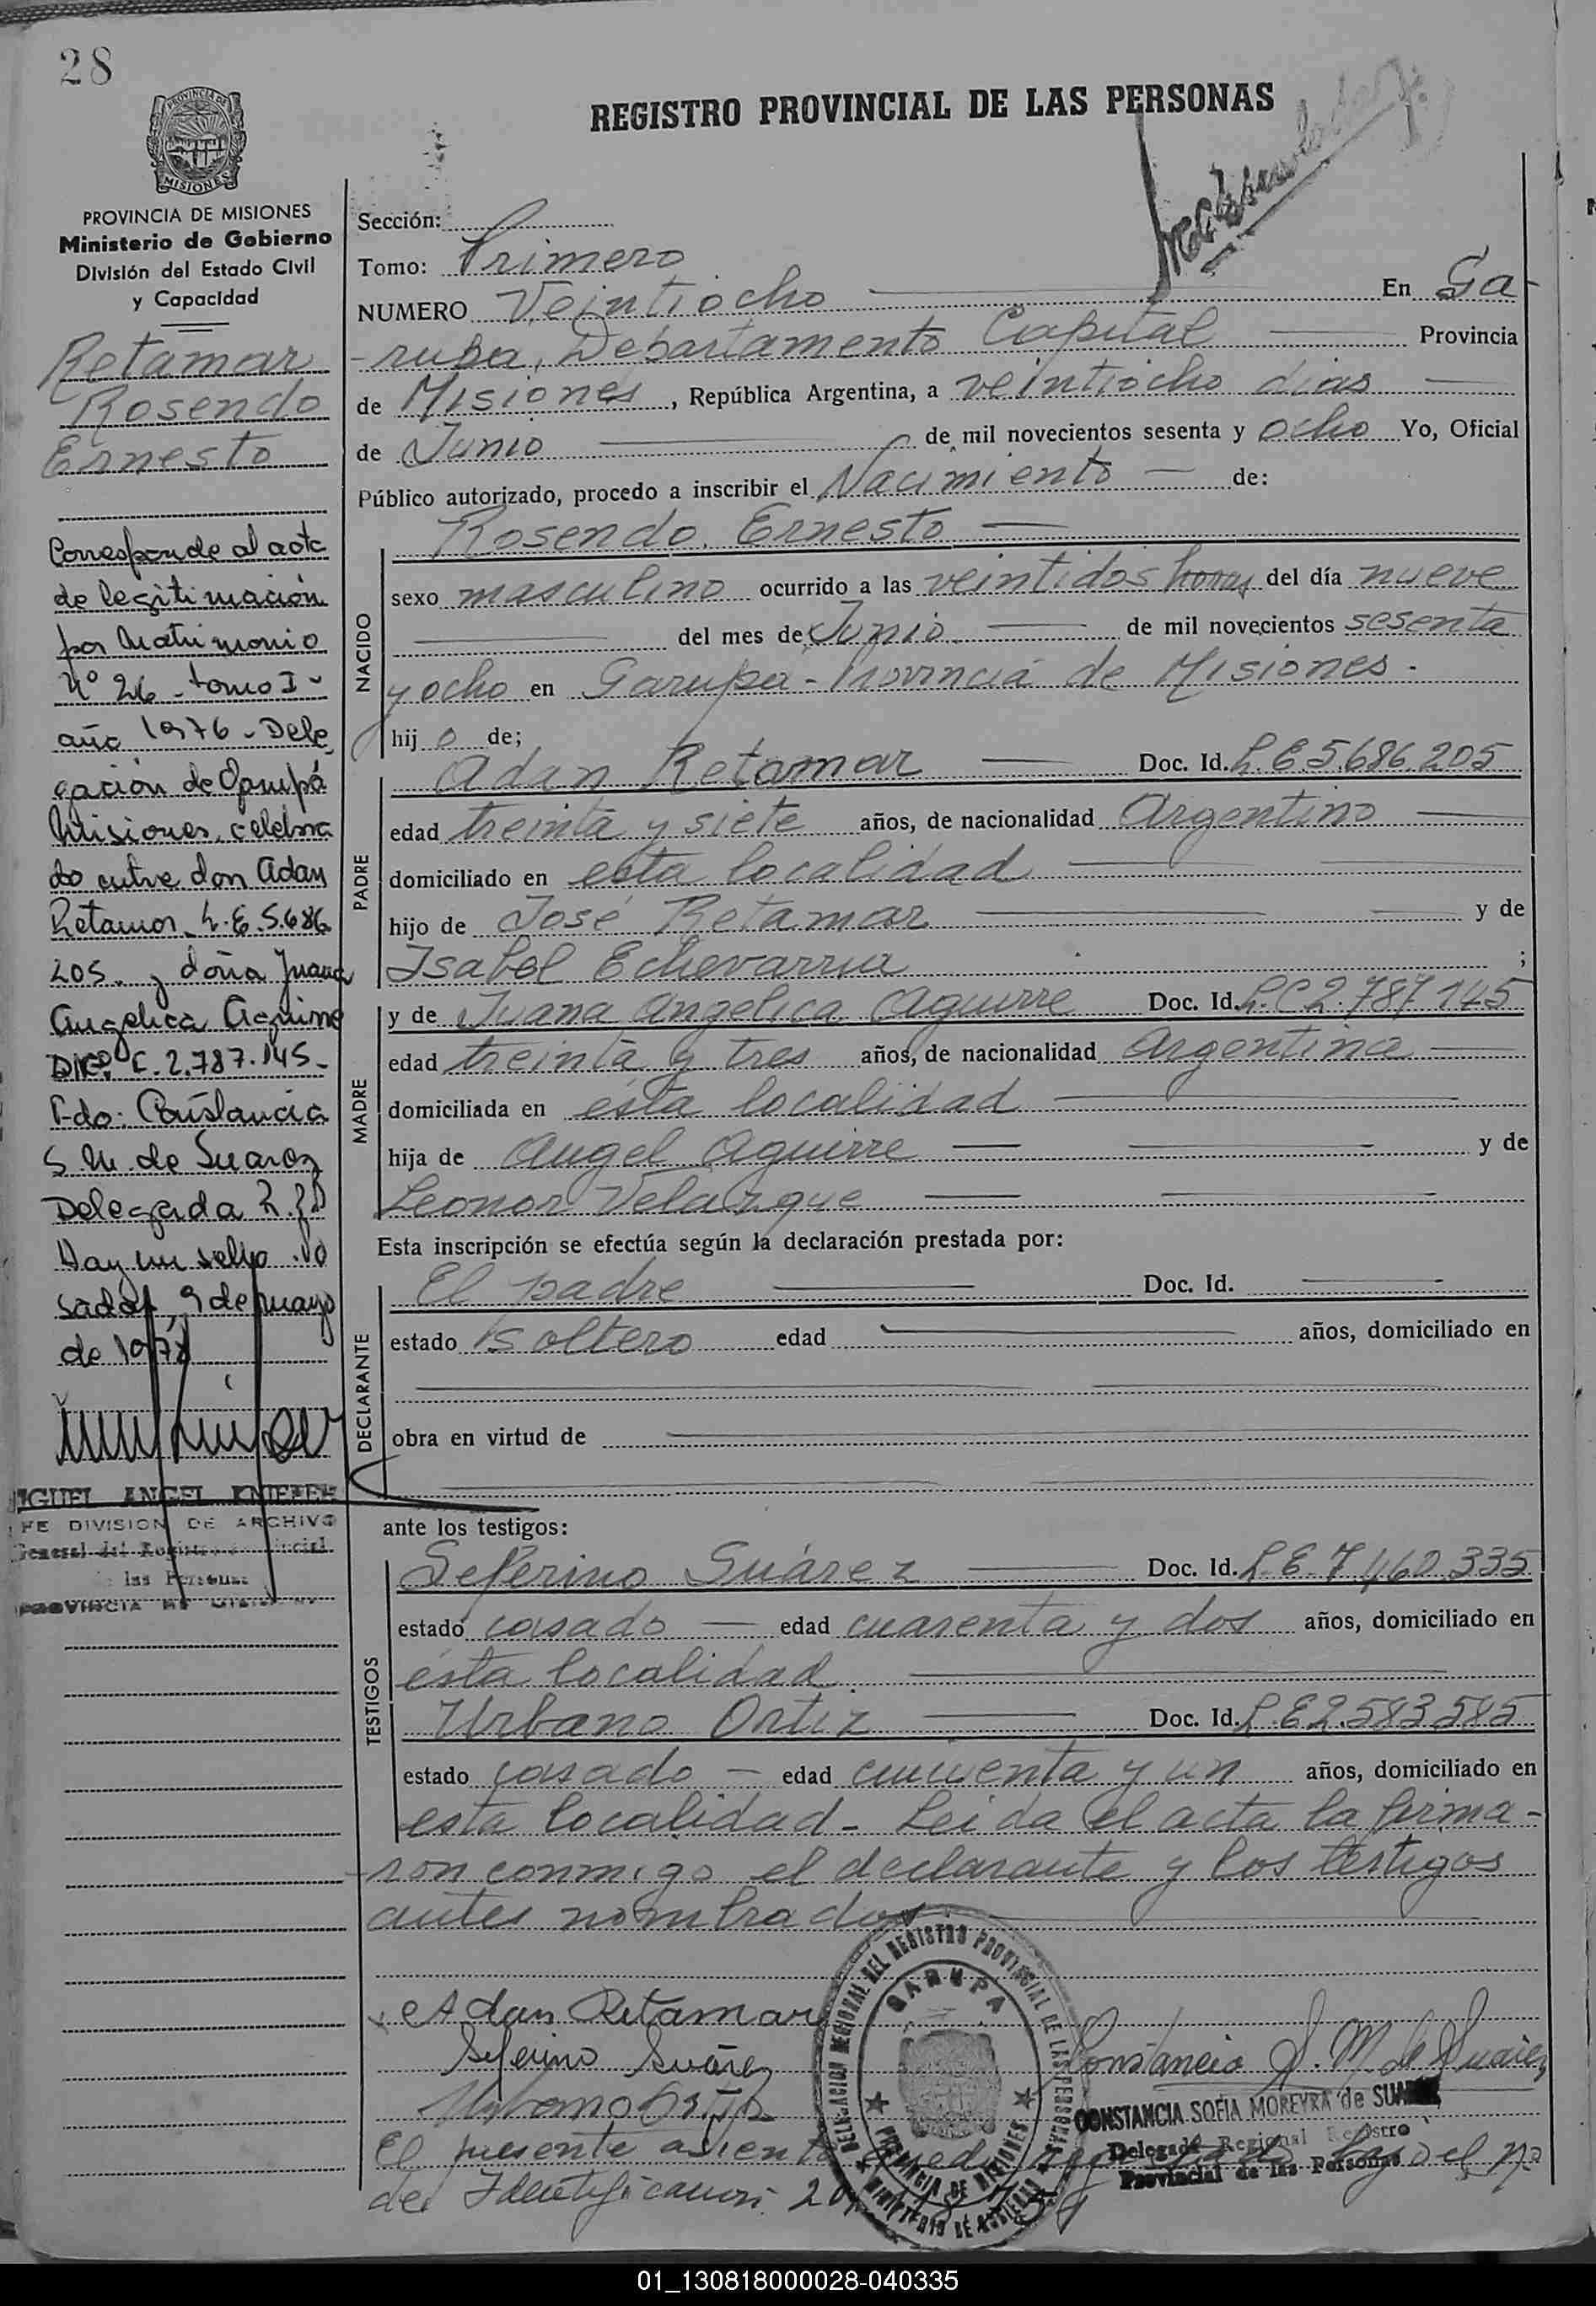 28
PROVINCIA DE
MISIONES
PROVINCIA DE MISIONES
Ministerio de Gobierno
División del Estado Civil
y Capacidad
Retamar
Rosendo
Ernesto
Corresponde al acta
de legitimación
por Matrimonio
Nº 26 - tomo I -
año 1976 - Dele
gación de Garupá
Misiones, celebra
do entre don Adan
Retamar L.E. 5.686
205. y doña Juana
Angelica Aguirre
C. 2.787.145 -
Fdo: Constancia
S. M. de Suarez
Delegada
Hay un sello. Po
sadas, 9 de mayo
de 1978
MIGUEL ANGEL
JEFE DIVISION DE ARCHIVO
General del Registro Provincial
de las Personas
PROVINCIA DE MISIONES
REGISTRO PROVINCIAL DE LAS PERSONAS
Sección:
Tomo: Primero
NUMERO Veintiocho En Ga-
-rupa, Departamento Capital Provincia
de Misiones, República Argentina, a veintiocho dias
de Junio de mil novecientos sesenta y ocho Yo, Oficial
Público autorizado, procedo a inscribir el Nacimiento de:
NACIDO
Rosendo Ernesto
sexo masculino ocurrido a las veintidos horas del día nueve
del mes de Junio de mil novecientos sesenta
y ocho en Garupá - Provincia de Misiones.
hijo de;
PADRE
Adan Retamar Doc. Id. L.E 5.686.205
edad treinta y siete años, de nacionalidad Argentino
domiciliado en esta localidad
hijo de José Retamar y de
Isabel Echevarria ;
MADRE
y de Juana Angelica Aguirre Doc. Id. L.C 2.787.145
edad treinta y tres años, de nacionalidad Argentina
domiciliada en ésta localidad
hija de Angel Aguirre y de
Leonor Velazque
Esta inscripción se efectúa según la declaración prestada por:
DECLARANTE
El padre Doc. Id.
estado soltero edad años, domiciliado en
obra en virtud de
ante los testigos:
TESTIGOS
Seferino Suárez Doc. Id. L.E 7.460.335
estado casado edad cuarenta y dos años, domiciliado en
ésta localidad.
Urbano Ortiz Doc. Id. L.E 2.583.585
estado casado edad cincuenta y un años, domiciliado en
esta localidad - Leida el acta la firma-
-ron conmigo el declarante y los testigos
antes nombrados.
Adan Retamar
Seferino Suárez
Urbano Ortiz
DELEGACION REGIONAL DEL REGISTRO PROVINCIAL DE LAS PERSONAS
GARUPA
PROVINCIA DE MISIONES
MINISTERIO DE GOBIERNO
Constancia S. M. de Suarez
CONSTANCIA SOFIA MOREYRA de SUAREZ
Delegada Regional Registro
Provincial de las Personas
El presente asiento bajo el No
de Identificacion 20
01_130818000028-040335